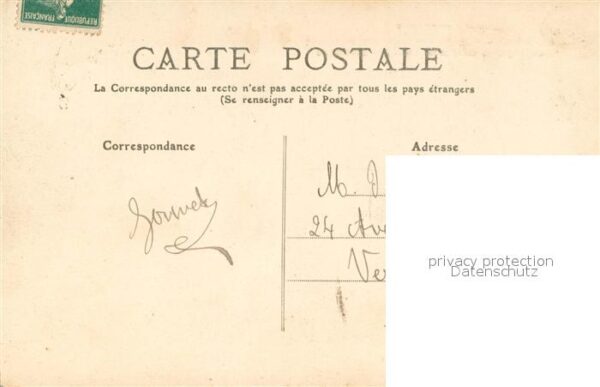 REPUBLIQUE
FRANÇAISE
CARTE POSTALE
La Correspondance au recto n'est pas acceptée par tous les pays étrangers
(Se renseigner à la Poste)
Correspondance
Adresse
M. D
24 Av
Ve
privacy protection
Datenschutz